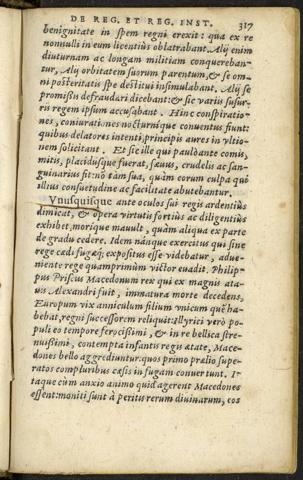 DE REG. ET REG. INST. 317
benignitate in spem regni erexit: qua ex re
nonnulli in eum licentiùs oblatrabant. Alij enim
diuturnam ac longam militiam conquereban-
tur, Alij orbitatem suorum parentum, & se om-
ni posteritatis spe destitui insimulabant. Alij se
promissis defraudari dicebant: & sic varijs susur-
ris regem ipsum accusabant. Hinc conspiratio-
nes, coniurationes nocturnique conuentus fiunt:
quibus delatores intenti, principis aures in vltio-
nem solicitant. Et sic ille qui paulò ante comis,
mitis, placidusque fuerat, sæuus, crudelis ac san-
guinarius fit: nõ tàm sua, quàm eorum culpa qui
illius consuetudine ac facilitate abutebantur.
Vnusquisque ante oculos sui regis ardentiùs
dimicat, & opera virtutis fortiùs ac diligentiùs
exhibet, morique mauult, quàm aliqua ex parte
de gradu cedere. Idem nanque exercitus qui sine
rege cædi fugæq; expositus esse videbatur, adue-
niente rege quamprimùm victor euadit. Philip-
pus Priscus Macedonum rex qui ex magnis ata-
uis Alexandri fuit, immatura morte decedens,
Europum vix anniculum filium vnicum quẽ ha-
bebat, regni successorem reliquit: Illyrici verò po-
puli eo tempore ferocissimi, & in re bellica stre-
nuissimi, contempta infantis regis ætate, Mace-
dones bello aggrediuntur: quos primo prælio supe-
ratos compluribus cæsis in fugam conuertunt. I-
taque cùm anxio animo quid agerent Macedones
essent: moniti sunt à peritis rerum diuinarum, eos